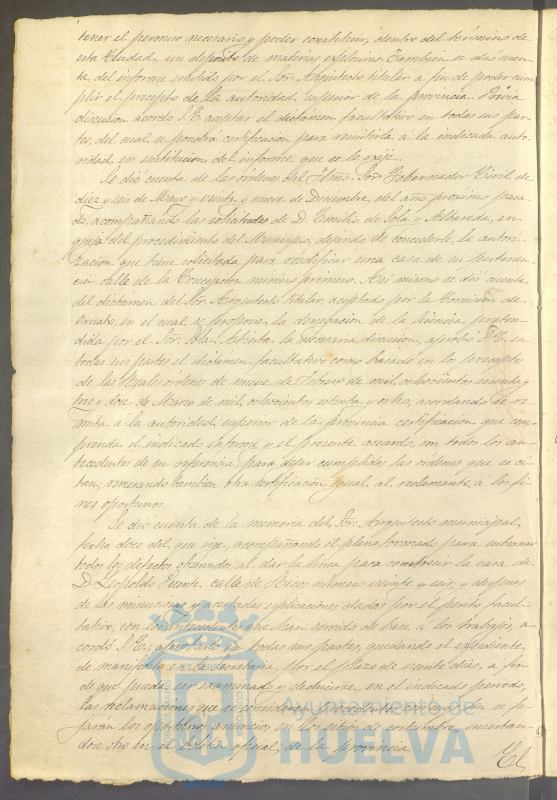 tener el permiso necesario y poder constituir, dentro del término de
esta Ciudad, un depósito de materias explosivas. Tambien se dió cuen-
ta del informe emitido por el Sor. Arquitecto titular a fin de poder cum-
plir el precepto de la autoridad superior de la provincia. Prévia
discusion acordó S.E. aceptar el dictámen facultativo en todas sus par-
tes, del cual se pondrá certificacion para remitirla á la indicada auto-
ridad, en sustitucion del informe que se le exije.
Se dió cuenta de las órdenes del Iltmo. Sor. Gobernador Civil de
diez y seis de Mayo y veinte y nueve de Diciembre, del año próximo pasa-
do, acompañando las solicitudes de D. Emilio de Sola y Albareda, en
queja del procedimiento del Municipio, dejando de concederle la autori-
zacion que tiene solicitada para reedificar una casa de su pertenen-
cia calle de la Concepcion número primero. Asi mismo se dió cuenta
del dictamen del Sor. Arquitecto titular, aceptado por la Comision de
Ornato, en el cual se propone la denegacion de la licencia preten-
dida por el Sor. Sola. Abierta la necesaria discusion, aprobó S.E. en
todas sus partes el dictámen facultativo como basado en los preceptos
de las Reales órdenes de nueve de Febrero de mil ochocientos sesenta y
tres y doce de Marzo de mil ochocientos setenta y ocho, acordando se re-
mita á la autoridad superior de la provincia certificacion que com-
prenda el indicado informe y el presente acuerdo, con todos los an-
tecedentes de su referencia para dejar cumplidas las ordenes que se ci-
tan; remesando tambien otra certificacion igual, al reclamante, a los fi-
nes oportunos.
Se dió cuenta de la memoria del Sor. Arquitecto municipal,
fecha doce del que rije, acompañando el plano formado para subsanar
todos los defectos observados, al dar la línea para construir la casa de
D. Leopoldo Puente, calle de Ricos número veinte y seis, y despues
de las minuciosas y acertadas esplicaciones dadas por el perito facul-
tativo, con los antecedentes que han servido de base a los trabajos, a-
cordó S.E., aprobarlo en todas sus partes, quedando el espediente,
de manifiesto en la Secretaría, por el plazo de veinte dias, a fin
de que pueda ser examinado y deducirse, en el indicado periodo,
las reclamaciones que se consideren procedentes, a cuyo fin se fi-
jarán los oportunos anuncios en los sitios de costumbre, insertan-
dose otro en el boletin oficial de la provincia.
El
Ayuntamiento de
HUELVA